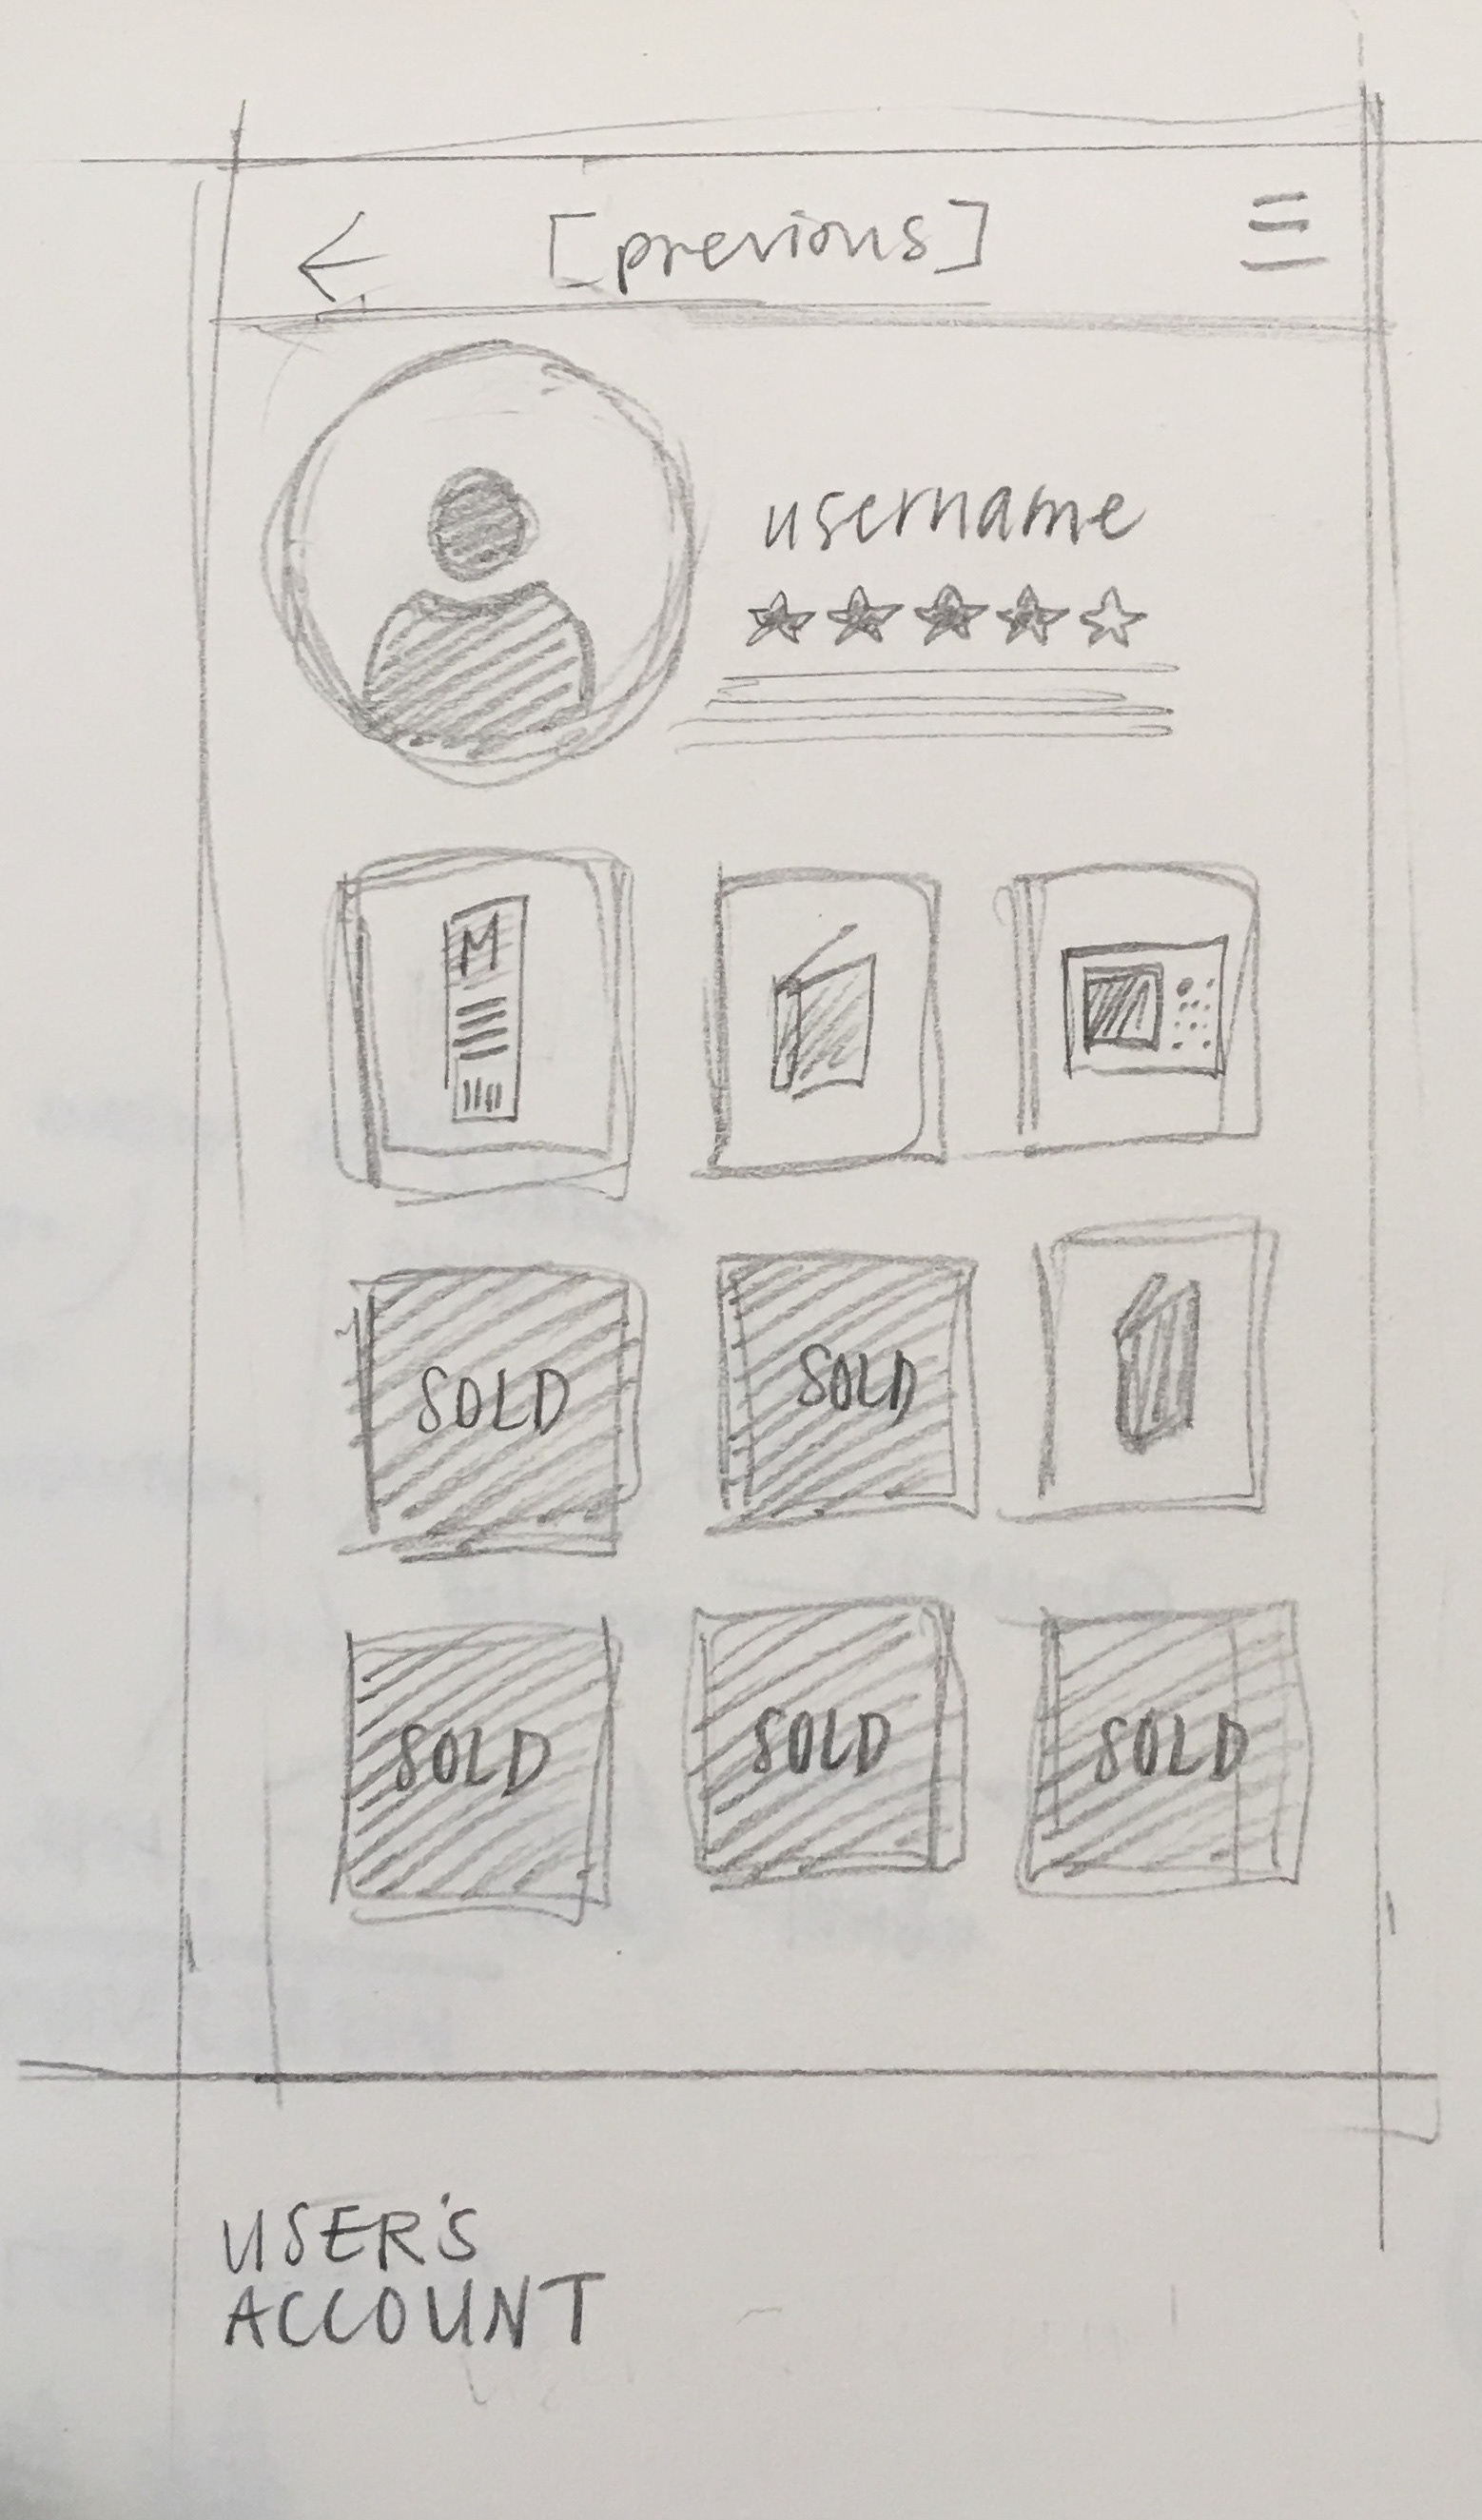 [previous]
username
M
SOLD SOLD
SOLD SOLD SOLD
USER'S
ACCOUNT